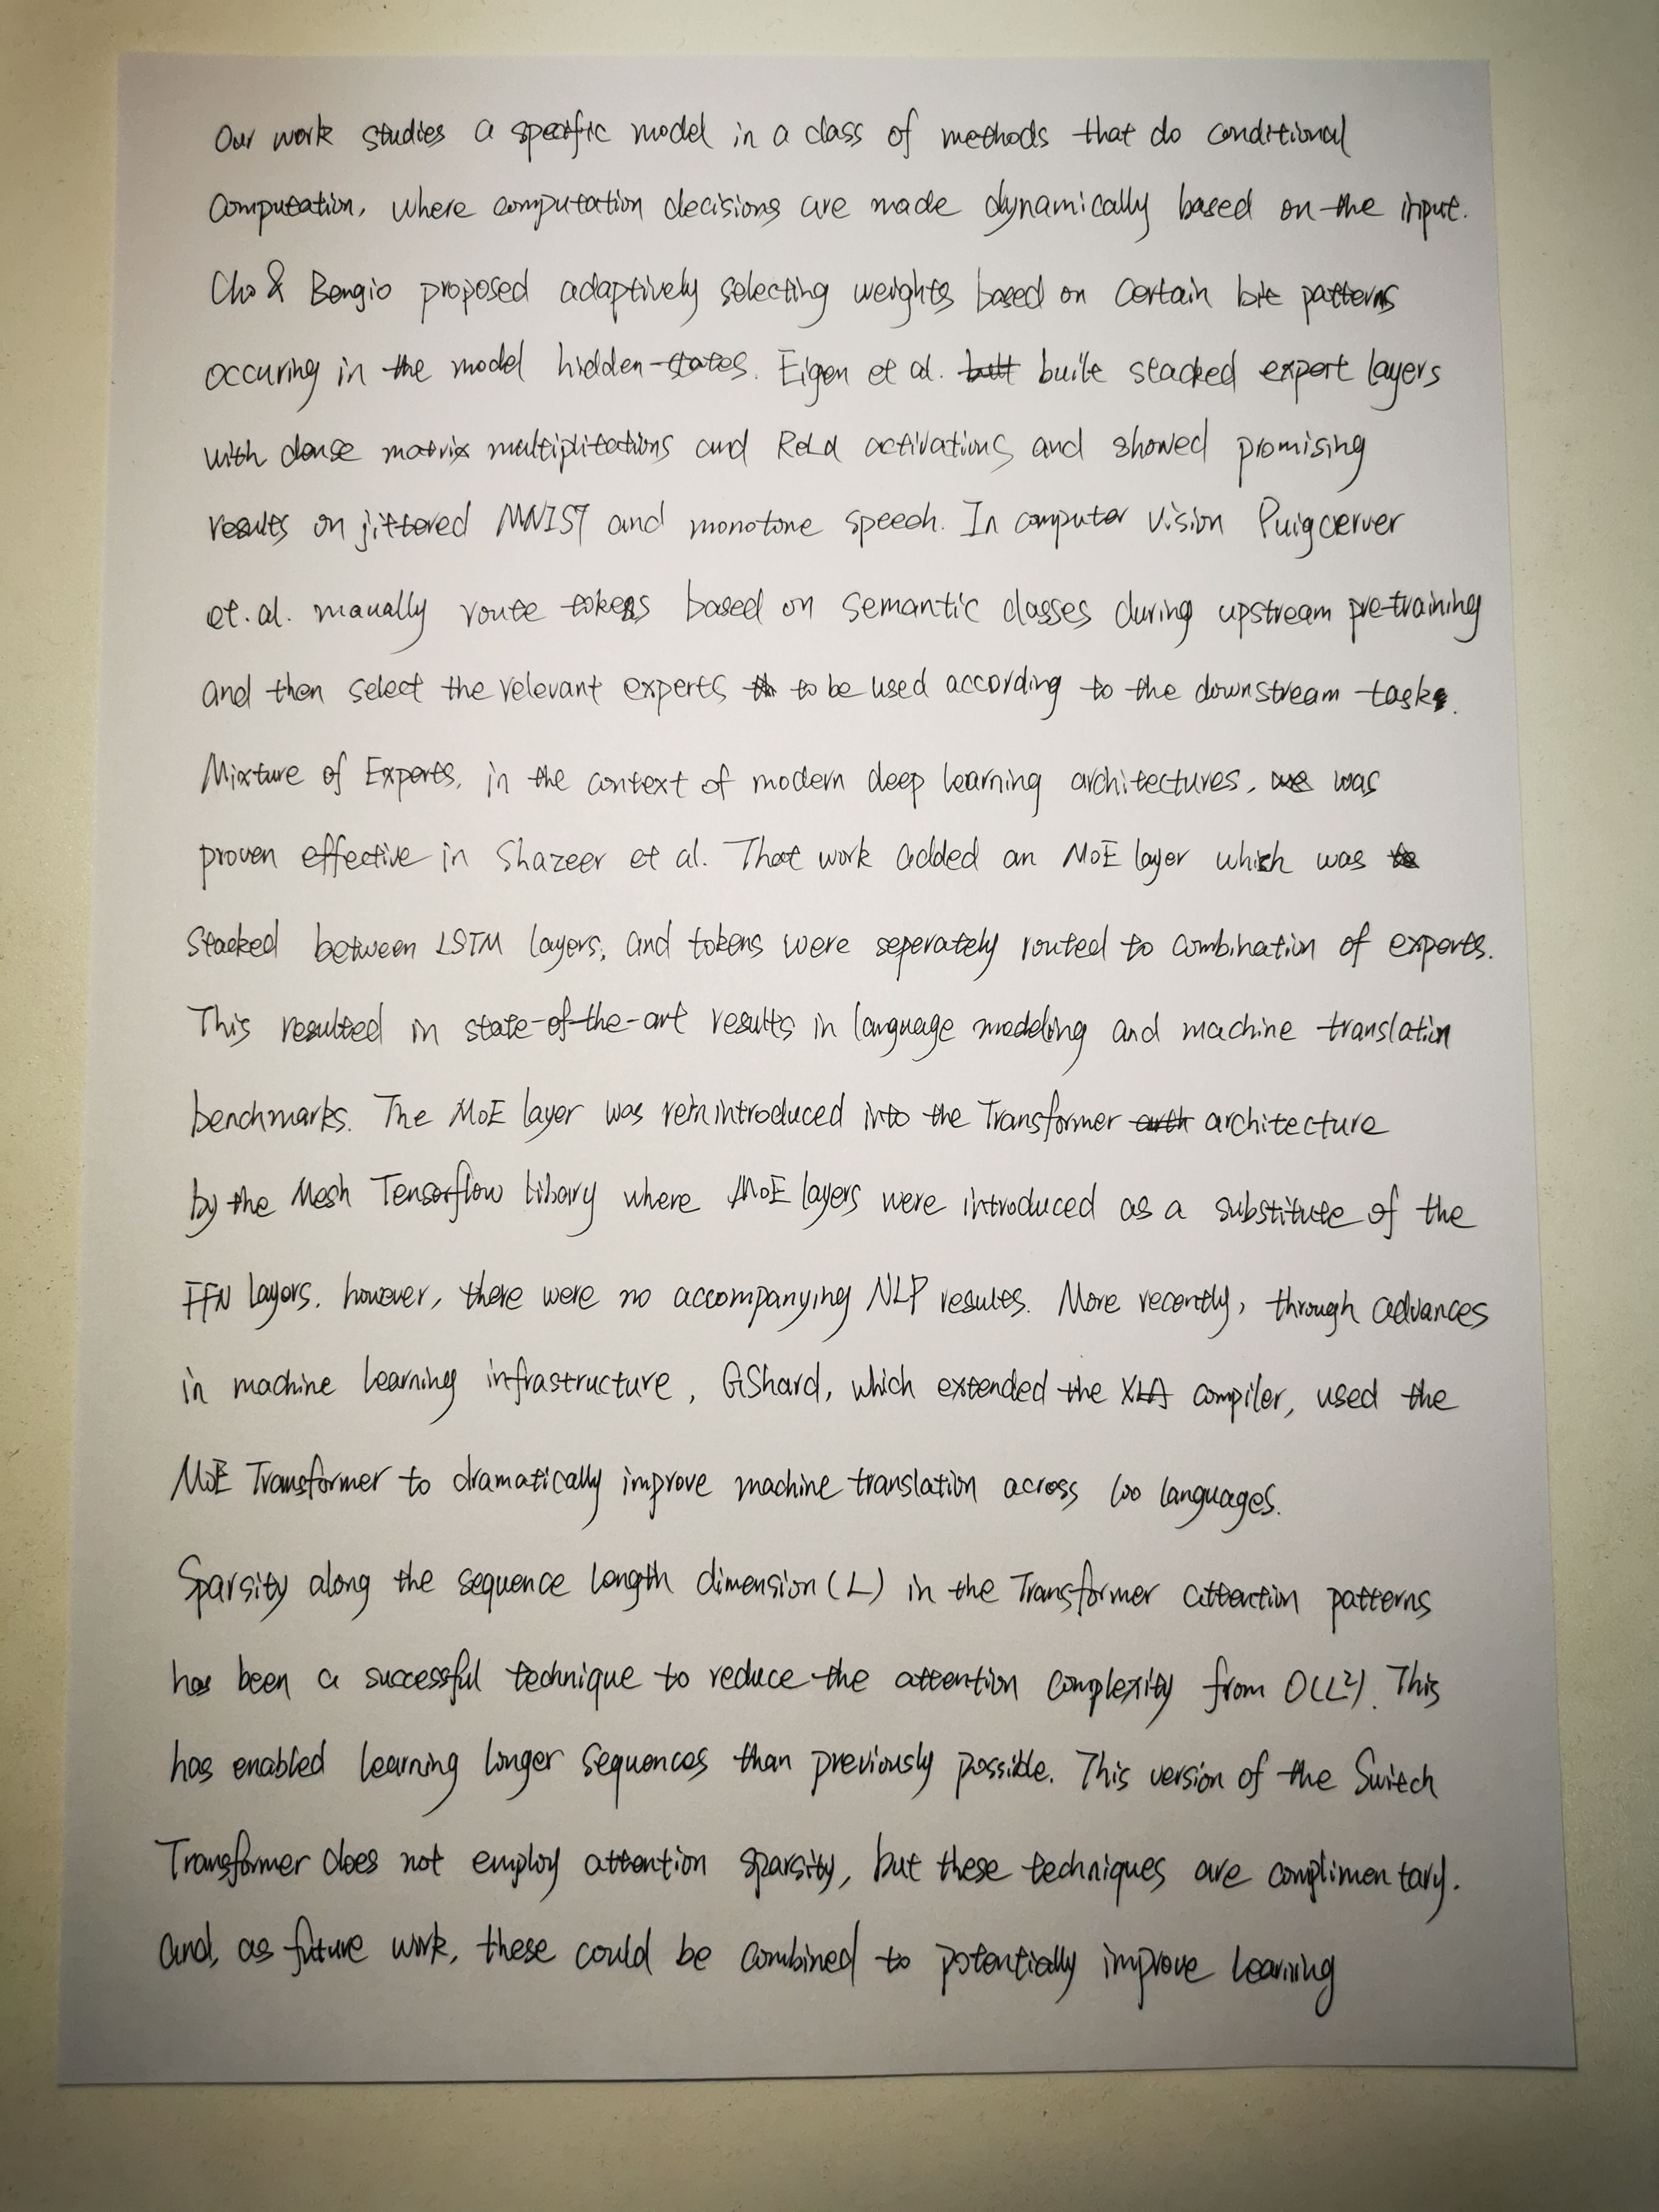 Our work studies a specific model in a class of methods that do conditional
computation, where computation decisions are made dynamically based on the input.
Cho & Bengio proposed adaptively selecting weights based on certain bit patterns
occuring in the model hidden-states. Eigen et al. built stacked expert layers
with dense matrix multiplitations and ReLu activations and showed promising
results on jittered MNIST and monotone speech. In computer vision Puigcerver
et.al. manually route tokens based on semantic classes during upstream pre-training
and then select the relevant experts to be used according to the downstream task.
Mixture of Experts, in the context of modern deep learning architectures, was
proven effective in Shazeer et al. That work added an MoE layer which was
stacked between LSTM layers, and tokens were seperately routed to combination of experts.
This resulted in state-of-the-art results in language modeling and machine translation
benchmarks. The MoE layer was reinintroduced into the Transformer architecture
by the Mesh Tensorflow libary where MoE layers were introduced as a substitute of the
FFN layers. however, there were no accompanying NLP results. More recently, through advances
in machine learning infrastructure, GShard, which extended the XLA compiler, used the
MoE Transformer to dramatically improve machine translation across 100 languages.
Sparsity along the sequence length dimension (L) in the Transformer attention patterns
has been a successful technique to reduce the attention complexity from O(L²). This
has enabled learning longer sequences than previously possible. This version of the Switch
Transformer does not employ attention sparsity, but these techniques are complimentary.
and, as future work, these could be combined to potentially improve learning